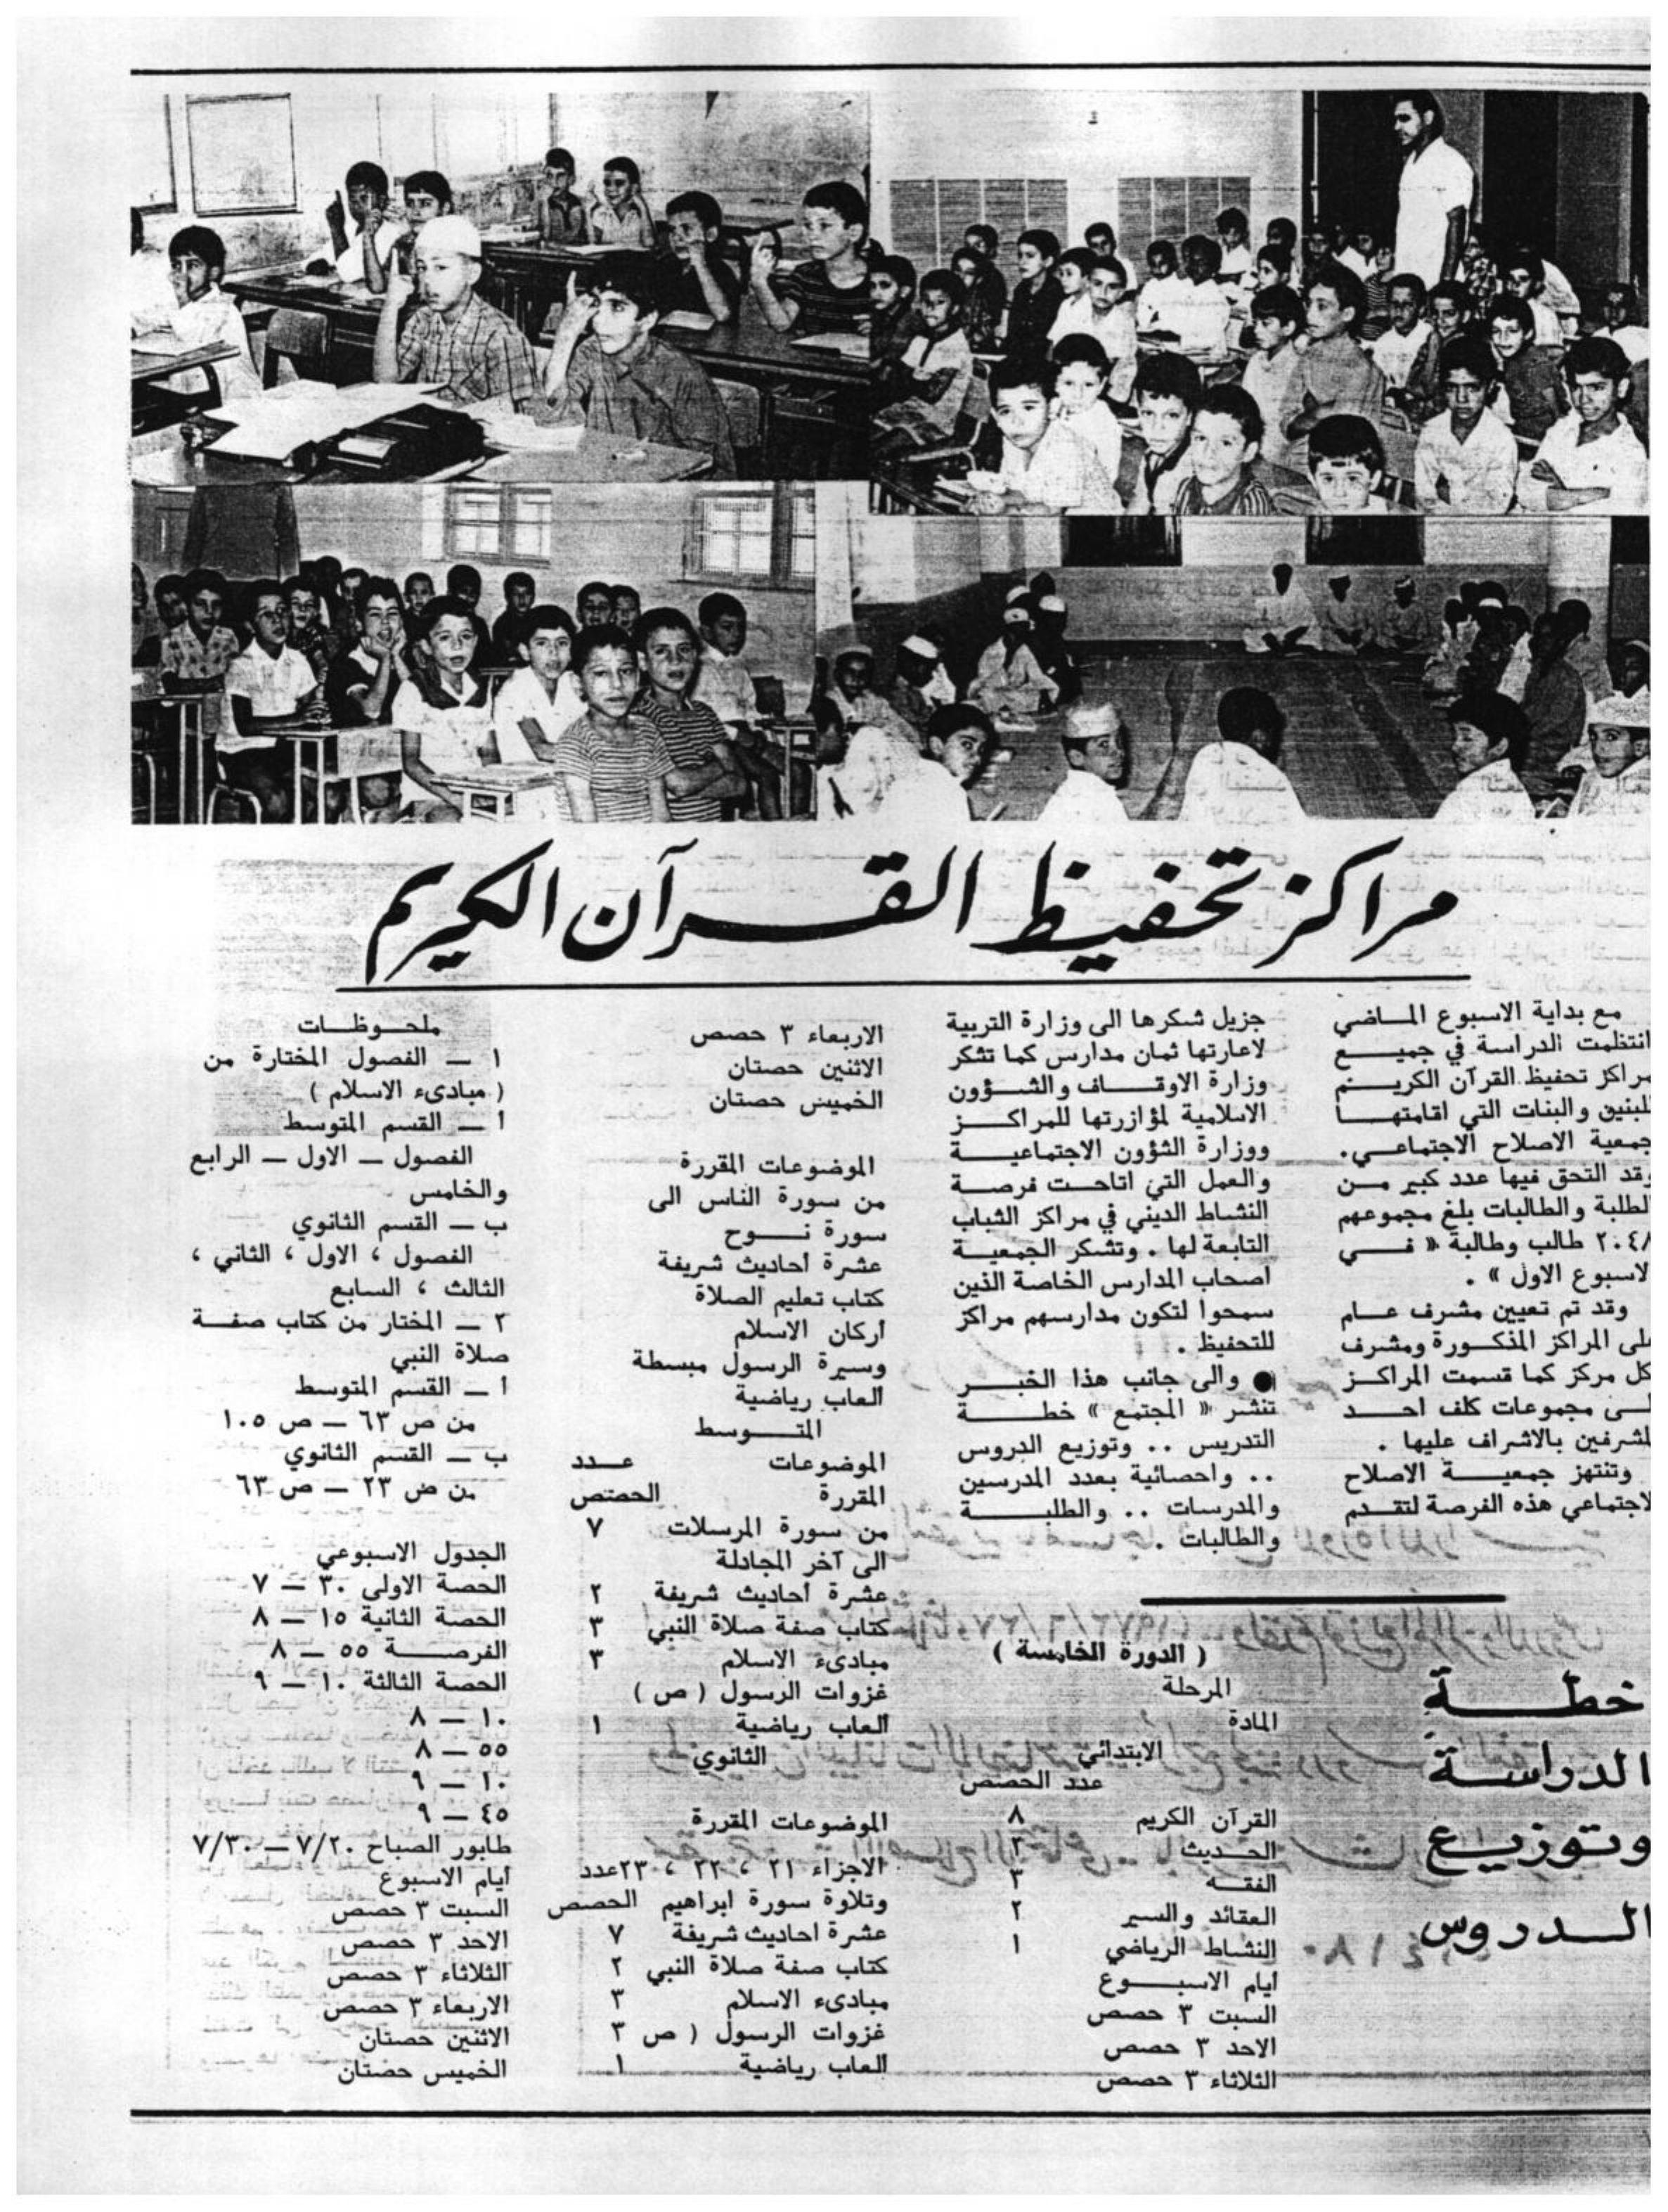 مراكز تحفيظ القرآن الكريم
مع بداية الاسبوع الماضي
انتظمت الدراسة في جميع
مراكز تحفيظ القرآن الكريم
للبنين والبنات التي اقامتها
جمعية الاصلاح الاجتماعي.
وقد التحق فيها عدد كبير من
الطلبة والطالبات بلغ مجموعهم
٢٠٤٨ طالب وطالبة « في
الاسبوع الاول » .
وقد تم تعيين مشرف عام
على المراكز المذكورة ومشرف
لكل مركز كما قسمت المراكز
الى مجموعات كلف احد
المشرفين بالاشراف عليها .
وتنتهز جمعية الاصلاح
الاجتماعي هذه الفرصة لتقدم
جزيل شكرها الى وزارة التربية
لاعارتها ثمان مدارس كما تشكر
وزارة الاوقاف والشؤون
الاسلامية لمؤازرتها للمراكز
ووزارة الشؤون الاجتماعية
والعمل التي اتاحت فرصة
النشاط الديني في مراكز الشباب
التابعة لها . وتشكر الجمعية
اصحاب المدارس الخاصة الذين
سمحوا لتكون مدارسهم مراكز
للتحفيظ .
● والى جانب هذا الخبر
تنشر « المجتمع » خطة
التدريس .. وتوزيع الدروس
.. واحصائية بعدد المدرسين
والمدرسات .. والطلبة
والطالبات .
خطة
الدراسة
وتوزيع
الدروس
( الدورة الخامسة )
المرحلة
المادة
الابتدائي
عدد الحصص
القرآن الكريم ٨
الحديث ٢
الفقه ٣
العقائد والسير ٢
النشاط الرياضي ١
ايام الاسبوع
السبت ٣ حصص
الاحد ٣ حصص
الثلاثاء ٣ حصص
الاربعاء ٣ حصص
الاثنين حصتان
الخميس حصتان
الموضوعات المقررة
من سورة الناس الى
سورة نوح
عشرة أحاديث شريفة
كتاب تعليم الصلاة
أركان الاسلام
وسيرة الرسول مبسطة
العاب رياضية
المتوسط
الموضوعات عدد
المقررة الحصص
من سورة المرسلات ٧
الى آخر المجادلة
عشرة أحاديث شريفة ٢
كتاب صفة صلاة النبي ٣
مبادىء الاسلام ٣
غزوات الرسول ( ص )
العاب رياضية ١
الثانوي
الموضوعات المقررة
الاجزاء ٢١ ، ٢٢ ، ٢٣ عدد
وتلاوة سورة ابراهيم الحصص
عشرة احاديث شريفة ٧
كتاب صفة صلاة النبي ٢
مبادىء الاسلام ٣
غزوات الرسول ( ص ٣
العاب رياضية ١
ملحوظات
١ — الفصول المختارة من
( مبادىء الاسلام )
أ — القسم المتوسط
الفصول — الاول — الرابع
والخامس
ب — القسم الثانوي
الفصول ، الاول ، الثاني ،
الثالث ، السابع
٢ — المختار من كتاب صفة
صلاة النبي
أ — القسم المتوسط
من ص ٦٣ — ص ١٠٥
ب — القسم الثانوي
من ص ٢٣ — ص ٦٣
الجدول الاسبوعي
الحصة الاولى ٣٠ — ٧
الحصة الثانية ١٥ — ٨
الفرصة ٥٥ — ٨
الحصة الثالثة ١٠ — ٩
١٠ — ٨
٥٥ — ٨
١٠ — ٩
٤٥ — ٩
طابور الصباح ٧/٢٠ — ٧/٣٠
أيام الاسبوع
السبت ٣ حصص
الاحد ٣ حصص
الثلاثاء ٣ حصص
الاربعاء ٣ حصص
الاثنين حصتان
الخميس حصتان